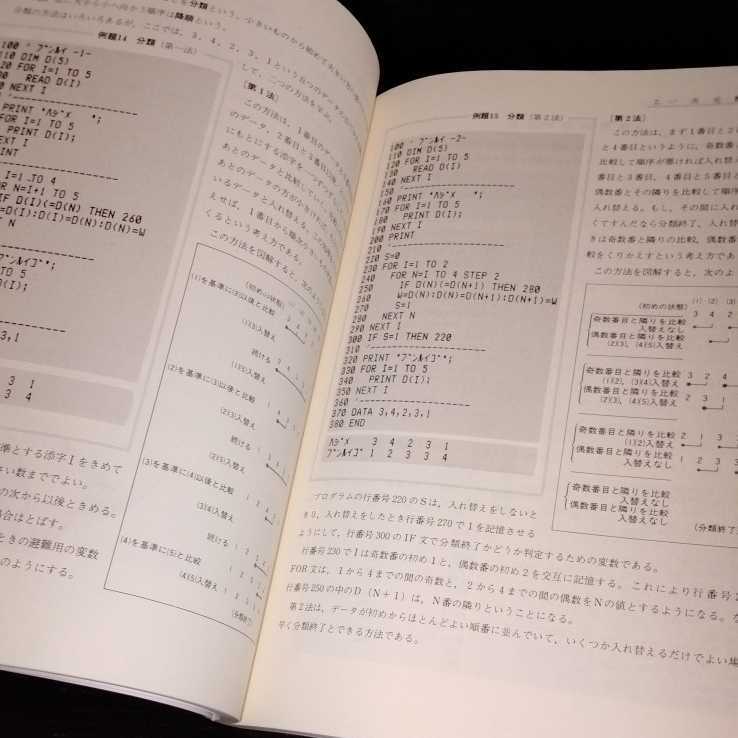 を分類という。小さいものから始めて
から小へ向かう順序は降順という。
分類の方法はいろいろあるが、ここでは、3, 4, 2, 3, 1という五つのデータ
して、二つの方法を学ぶ。
例題14 分類(第一法)
100 ' ブンルイ -1-
110 DIM D(5)
20 FOR I=1 TO 5
30 READ D(I)
NEXT I
PRINT "ハジメ ";
FOR I=1 TO 5
PRINT D(I);
NEXT I
RINT
I=1 TO 4
R N=I+1 TO 5
IF D(I)<=D(N) THEN 260
=D(I):D(I)=D(N):D(N)=W
N
ブンルイゴ";
O 5
(I);
3,1
3 1
3 4
[第1法]
この方法は、1番目のデータ
のデータ、2番目と3番目以後
にもとにする添字を一つずつ
あとのデータと比較していき
あとのデータの方が小さければ
いるデータと入れ替える。
えせば、1番目から順次小さい
くるという考え方である。
この方法を図解すると、次の
(初めの状態)
(1)を基準に(2)以後と比較
(1)(3)入替え
続ける
(1)(5)入替え
(2)を基準に(3)以後と比較
(2)(3)入替え
続ける
(2)(5)入替え
(3)を基準に(4)以後と比較
(3)(4)入替え
続ける
(3)(5)入替え
(4)を基準に(5)と比較
(4)(5)入替え
(分類終了)
準とする添字Iをきめて
い数まででよい。
の次から以後ときめる。
場合はとばす。
ときの避難用の変数
のようにする。
例題15 分類(第2法)
100 ' ブンルイ -2-
110 DIM D(5)
120 FOR I=1 TO 5
130 READ D(I)
140 NEXT I
150 '--------------------
160 PRINT "ハジメ ";
170 FOR I=1 TO 5
180 PRINT D(I);
190 NEXT I
200 PRINT
210 '--------------------
220 S=0
230 FOR I=1 TO 2
240 FOR N=I TO 4 STEP 2
250 IF D(N)<=D(N+1) THEN 280
260 W=D(N):D(N)=D(N+1):D(N+1)=W
270 S=1
280 NEXT N
290 NEXT I
300 IF S=1 THEN 220
310 '--------------------
320 PRINT "ブンルイゴ";
330 FOR I=1 TO 5
340 PRINT D(I);
350 NEXT I
360 '--------------------
370 DATA 3,4,2,3,1
380 END
ハジメ 3 4 2 3 1
ブンルイゴ 1 2 3 3 4
[第2法]
この方法は、まず1番目と2
と4番目というように、奇数番
比較して順序が悪ければ入れ替え
番目と3番目、4番目と5番目と
偶数番とその隣りを比較して順序
入れ替える。もし、その間に入れ
くてすんだなら分類終了、入れ替
きは奇数番と隣りの比較、偶数番
較をくりかえすという考え方であ
この方法を図解すると、次のよ
(初めの状態) (1) (2) (3)
3 4 2
奇数番目と隣りを比較
入替えなし
偶数番目と隣りを比較
(2)(3), (4)(5)入替え
奇数番目と隣りを比較 3 2 4
(1)(2), (3)(4)入替え
偶数番目と隣りを比較 2 3 1
(2)(3), (4)(5)入替え
奇数番目と隣りを比較 2 1 3
(1)(2)入替え
偶数番目と隣りを比較 1 2 3
入替えなし
奇数番目と隣りを比較
入替えなし
偶数番目と隣りを比較
入替えなし
(分類終了)
プログラムの行番号220のSは、入れ替えをしないと
き0, 入れ替えをしたとき行番号270で1を記憶させる
ようにして、行番号300のIF文で分類終了かどうか判定するための変数である。
行番号230でIは奇数番の初め1と、偶数番の初め2を交互に記憶する。これにより行番号2
FOR文は、1から4までの間の奇数と、2から4までの間の偶数をNの値とするようになる。な
行番号250の中のD(N+1)は、N番の隣りということになる。
第2法は、データが初めからほとんどよい順番に並んでいて、いくつか入れ替えるだけでよい場
早く分類終了とできる方法である。